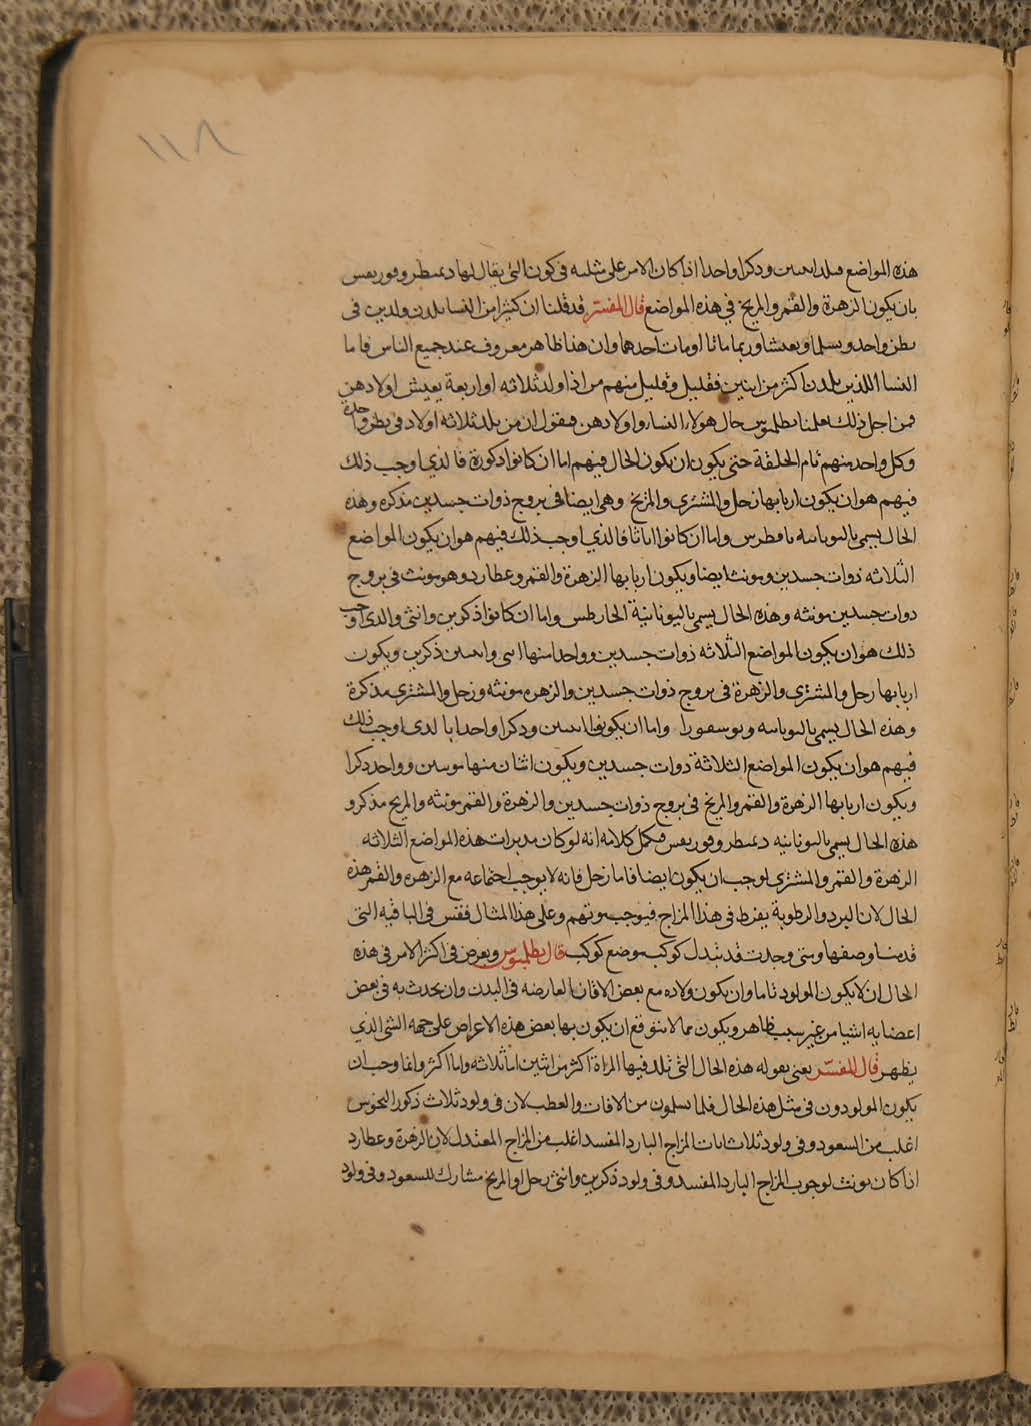 ١١٨
هذه المواضع فيلد انثيين وذكرا واحدا اذا كان الامر على مثلثه في كون التي يقال لها ديمطر وفوريفس
بان يكون الزهرة والقمر والمريخ في هذه المواضع قال المفسر قد قلنا ان كثيرا من النسا يلدن ولدين في
بطن واحد ويسلما ويعيشا وربما ماتا او مات احدهما وان هذا ظاهر معروف عند جميع الناس فاما
النسا اللذين يلدن اكثر من اثنين فقليل وقليل منهم من اذا ولد ثلاثه او اربعة يعيش اولادهن
فمن اجل ذلك يعلمنا بطلميوس حال هولاء النساء واولادهن فيقول ان من يلد ثلاثه اولاد في بطن واحدة
وكل واحد منهم تام الخلقة حتى يكون ان يكون الحال فيهم اما ان كانوا ذكورة فالذي اوجب ذلك
فيهم هو ان يكون اربابها زحل والمشترى والمريخ وهي ايضا في بروج ذوات جسدين مذكره وهذه
الحال يسمى باليونانيه واما ان كانوا اناثا فالذي اوجب ذلك فيهم هو ان يكون المواضع
الثلاثه ذوات جسدين ومونث ايضا ويكون اربابها الزهرة والقمر وعطارد وهو مونث في بروج
ذوات جسدين مونثه وهذه الحال يسمى باليونانية الخارطس واما ان كانوا ذكرين وانثى والذي اوجب
ذلك هو ان يكون المواضع الثلاثه ذوات جسدين وواحد منها انثى واثنين ذكرين ويكون
اربابها زحل والمشترى والزهرة في بروج ذوات جسدين والزهره مونثه وزحل والمشترى مذكرة
وهذه الحال يسمى باليونانيه واما ان يكونوا انثيين وذكرا واحدا بالذي اوجب ذلك
فيهم هو ان يكون المواضع الثلاثة ذوات جسدين ويكون اثنان منها مونثين وواحد ذكرا
ويكون اربابها الزهرة والقمر والمريخ في بروج ذوات جسدين والزهرة والقمر مونثه والمريخ مذكر و
هذه الحال يسمى باليونانيه ديمطر وفوريفس فيكمل كلامه انه لو كان مدبرات هذه المواضع الثلاثه
الزهرة والقمر والمشترى لوجب ان يكون ايضا فاما زحل فانه لا يوجب اجتماعه مع الزهره والقمر هذه
الحال لان البرد والرطوبة يفرط في هذا المزاج فيوجب موتهم وعلى هذا المثال فقس في الباقيه التي
قدمنا وصفها ومتى وجدت قد تبدل كوكب موضع كوكب قال بطلميوس ويعرض في اكثر الامر في هذه
الحال ان لا يكون المولود تاما وان يكون ولاده مع بعض الافات العارضه في البدن وان يحدث به في بعض
اعضايه اشيا من غير سبب ظاهر ويكون مما لا يتوقع ان يكون بها بعض هذه الاعراض على جهه الشي الذي
يظهر قال المفسر يعني بقوله هذه الحال التي تلد فيها المراة اكثر من اثنين اما ثلاثه واما اكثر وانما وجب ان
يكون المولودون في مثل هذه الحال قلما يسلمون من الافات والعطب لان في ولود ثلاث ذكور النحوس
اغلب من السعود وفي ولود ثلاث اناث المزاج البارد المفسد اغلب من المزاج المعتدل لان الزهرة وعطارد
اذا كان مونث لوجوب المزاج البارد المفسد وفي ولود ذكرين وانثى زحل او المريخ مشارك للسعود وفي ولود